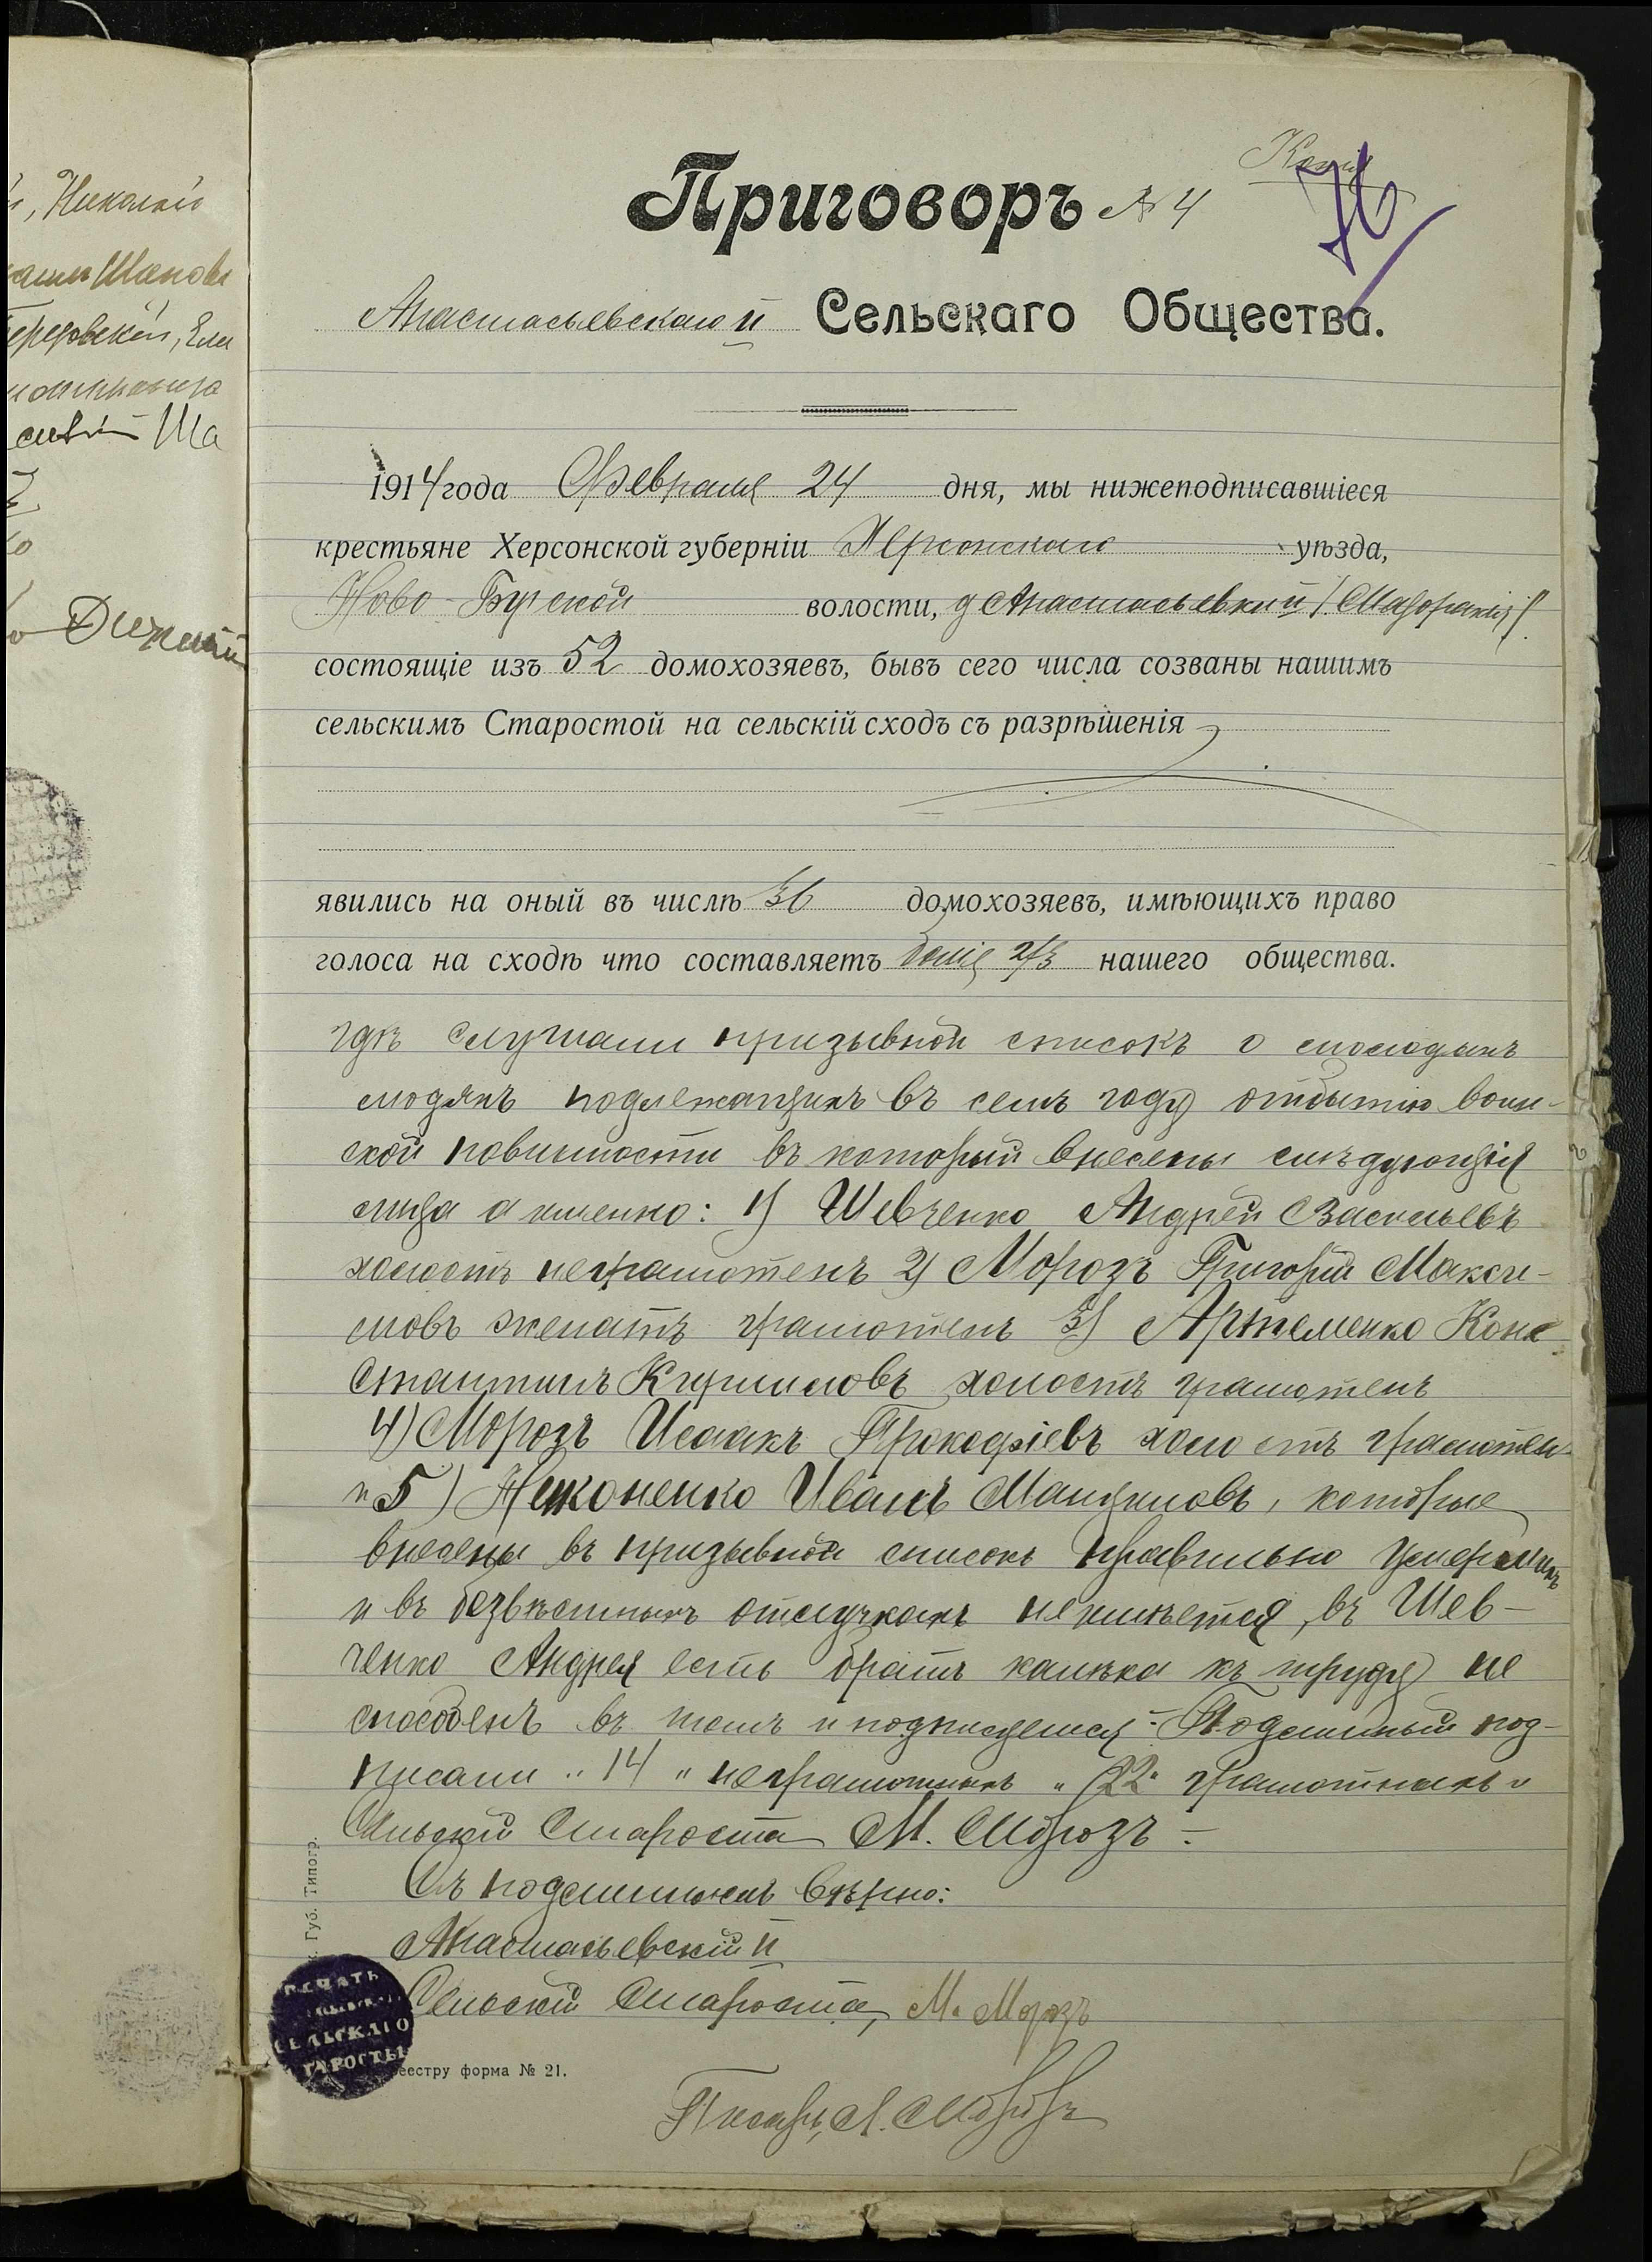 й, Николай
Шапова
Ели
Ша
Копія
Приговоръ № 4
76
Анастасьевскаго II Сельскаго Общества.
1914 года Февраля 24 дня, мы нижеподписавшіеся
крестьяне Херсонской губерніи Херсонскаго уѣзда,
Ново-Бугской волости, д Анастасьевкий II
состоящіе изъ 52 домохозяевъ, бывъ сего числа созваны нашимъ
сельскимъ Старостой на сельскій сходъ съ разрѣшенія
явились на оный въ числѣ 36 домохозяевъ, имѣющихъ право
голоса на сходѣ что составляетъ болѣе 2/3 нашего общества.
гдѣ слушали призывной списокъ о молодыхъ
людяхъ подлежащихъ въ семъ году отбытію воин-
ской повинности въ который внесены слѣдующія
лица а именно: 1) Шевченко Андрей Васильевъ
холостъ неграмотенъ 2) Морозъ Григорій Макси-
мовъ женатъ грамотенъ 3) Артеменко Кон-
стантинъ Кирилловъ холостъ грамотенъ
4) Морозъ Исаакъ Прокофіевъ холостъ грамотен
и 5) Никоненко Иванъ, которые
внесены въ призывной списокъ правильно умершихъ
и въ безвѣстныхъ отлучкахъ не имѣется, въ Шев-
ченко Андрея есть братъ калѣка къ труду не
способенъ въ томъ и подписуемся:- Подлинный под-
писали „14„ неграмотныхъ „22„ грамотныхъ и
Сельскій Староста М. Морозъ.-
Съ подлиннымъ вѣрно:
Анастасьевскій II
Сельскій Староста, М. Морозъ
ПЕЧАТЬ
СЕЛЬСКАГО
СТАРОСТЫ
Губ. Типогр.
реестру форма № 21.
Писарь, А. Морозъ